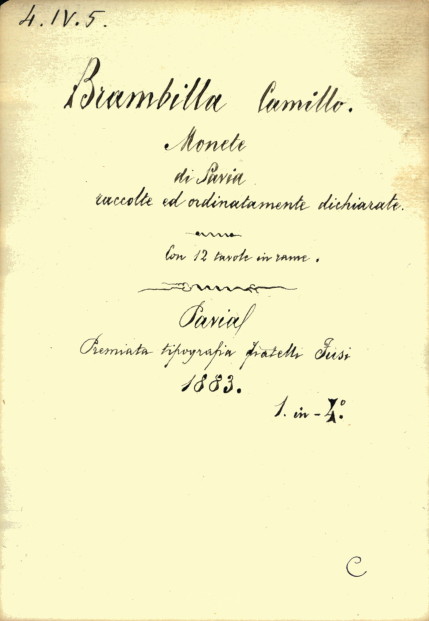 4.IV.5.
Brambilla Camillo.
Monete
di Pavia
raccolte ed ordinatamente dichiarate.
Con 12 tavole in rame.
Pavia
Premiata tipografia fratelli Fusi
1883.
1. in-4°.
C